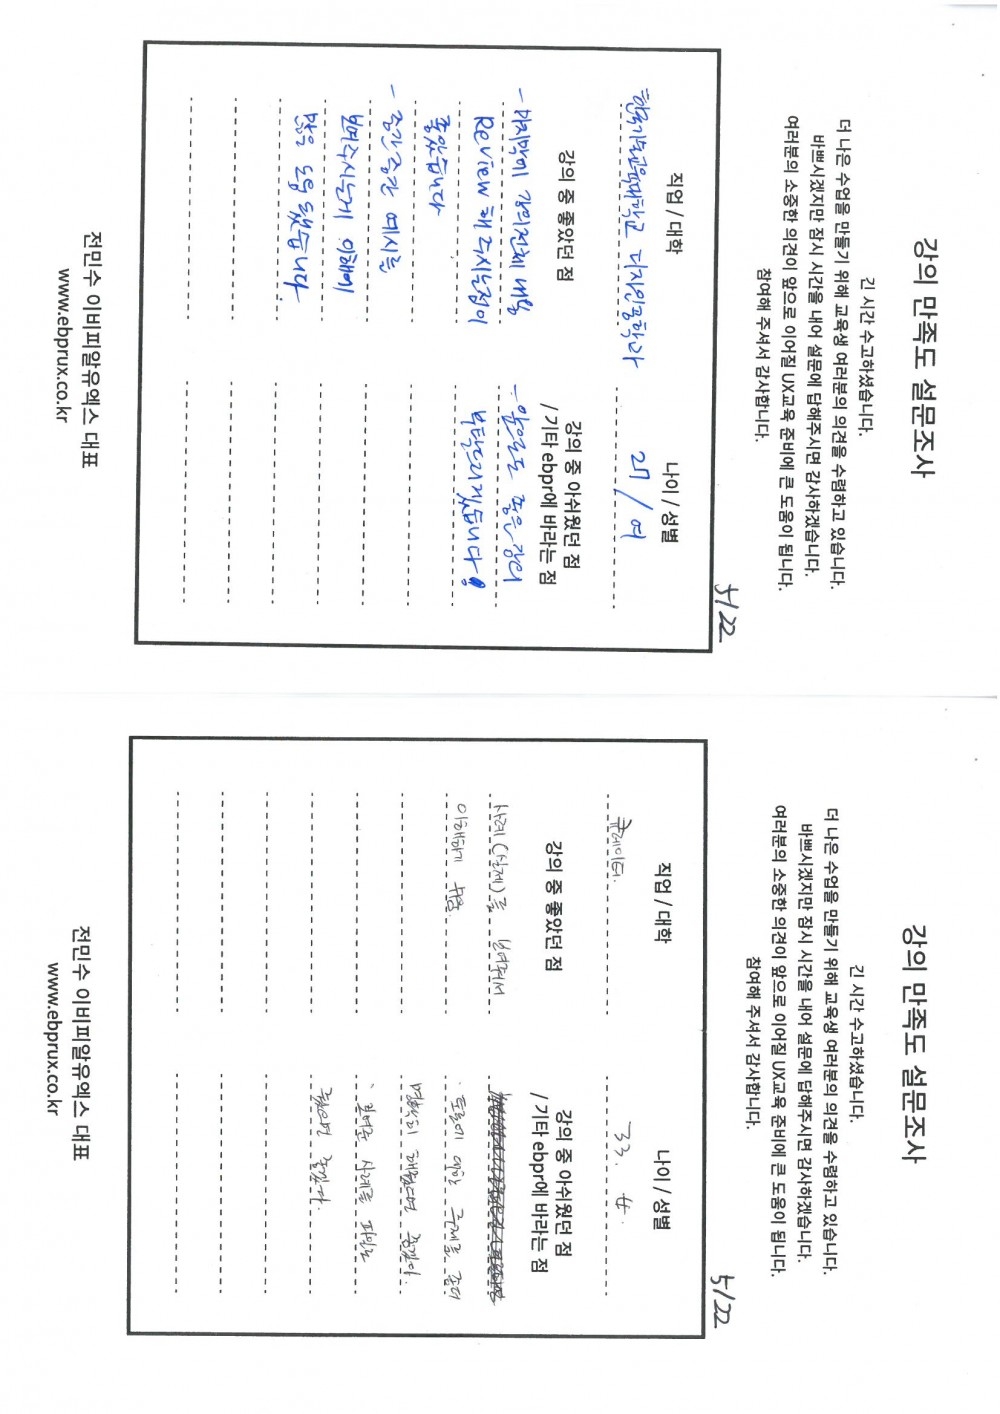 강의 만족도 설문조사
긴 시간 수고하셨습니다.
더 나은 수업을 만들기 위해 교육생 여러분의 의견을 수렴하고 있습니다.
바쁘시겠지만 잠시 시간을 내어 설문에 답해주시면 감사하겠습니다.
여러분의 소중한 의견이 앞으로 이어질 UX교육 준비에 큰 도움이 됩니다.
참여해 주셔서 감사합니다.
5/22
직업 / 대학
나이 / 성별
한국기술교육대학교 디자인공학과
27 / 여
강의 중 좋았던 점
- 마지막에 강의전체 내용
Review 해 주시는점이
좋았습니다
- 중간중간 예시를
보여주시는게 이해에
많은 도움 됐습니다.
강의 중 아쉬웠던 점
/ 기타 ebpr에 바라는 점
- 앞으로도 좋은 강의
부탁드리겠습니다!
전민수 이비피알유엑스 대표
www.ebprux.co.kr
강의 만족도 설문조사
긴 시간 수고하셨습니다.
더 나은 수업을 만들기 위해 교육생 여러분의 의견을 수렴하고 있습니다.
바쁘시겠지만 잠시 시간을 내어 설문에 답해주시면 감사하겠습니다.
여러분의 소중한 의견이 앞으로 이어질 UX교육 준비에 큰 도움이 됩니다.
참여해 주셔서 감사합니다.
5/22
직업 / 대학
나이 / 성별
큐레이터.
33. 女.
강의 중 좋았던 점
사례(실제)를 보여줘서
이해하기 쉬움.
강의 중 아쉬웠던 점
/ 기타 ebpr에 바라는 점
· 토론에 대한 주제를 좀더
명확히 해줬으면 좋겠다.
· 사례를 파일로
줬으면 좋겠다.
전민수 이비피알유엑스 대표
www.ebprux.co.kr